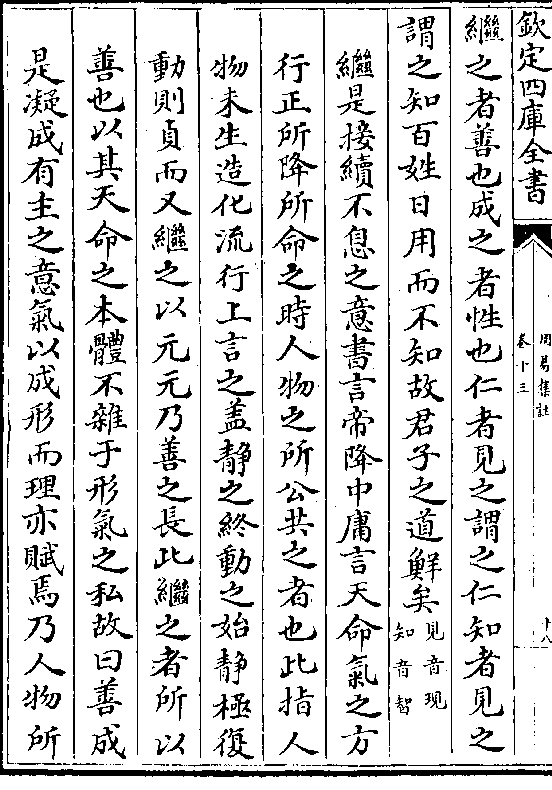 欽定四庫全書
周易集註
卷十三
十八
繼之者善也成之者性也仁者見之謂之仁知者見之
謂之知百姓日用而不知故君子之道鮮矣見音現
知音智
繼是接續不息之意書言帝降中庸言天命氣之方
行正所降所命之時人物之所公共之者也此指人
物未生造化流行上言之盖靜之終動之始靜極復
動則貞而又繼之以元元乃善之長此繼之者所以
善也以其天命之本體不雜于形氣之私故曰善成
是凝成有主之意氣以成形而理亦賦焉乃人物所